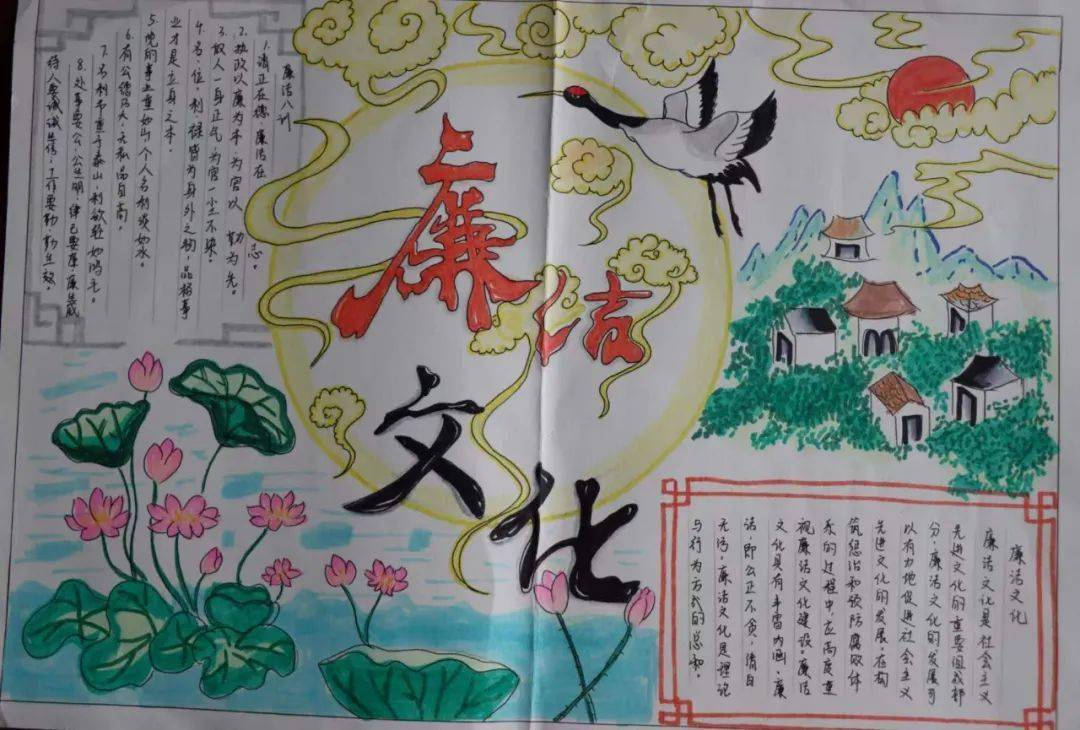 廉洁
文化
廉洁八训
1.清正在德,廉洁在志。
2.执政以廉为本,为官以勤为先。
3.做人一身正气,为官一尘不染。
4.名,位,利,禄皆为身外之物,品格事
业才是立身之本。
5.视民事业重如山,个人名利淡如水。
6.有公德乃大,无私品自高。
7.名利
重于泰山,利欲轻如鸿毛。
8.处事要公,公生明,律己要廉,廉生威
待人要诚,诚生信,工作要勤,勤生效。
廉洁文化
廉洁文化是社会主义
先进文化的重要组成部
分,廉洁文化的发展可
以有力地促进社会主义
先进文化的发展,在构
筑惩治和预防腐败体
系的过程中,应高度重
视廉洁文化建设,廉洁
文化具有丰富内涵,廉
洁,即公正不贪,清白
无污,廉洁文化是理论
与行为方式的总和。